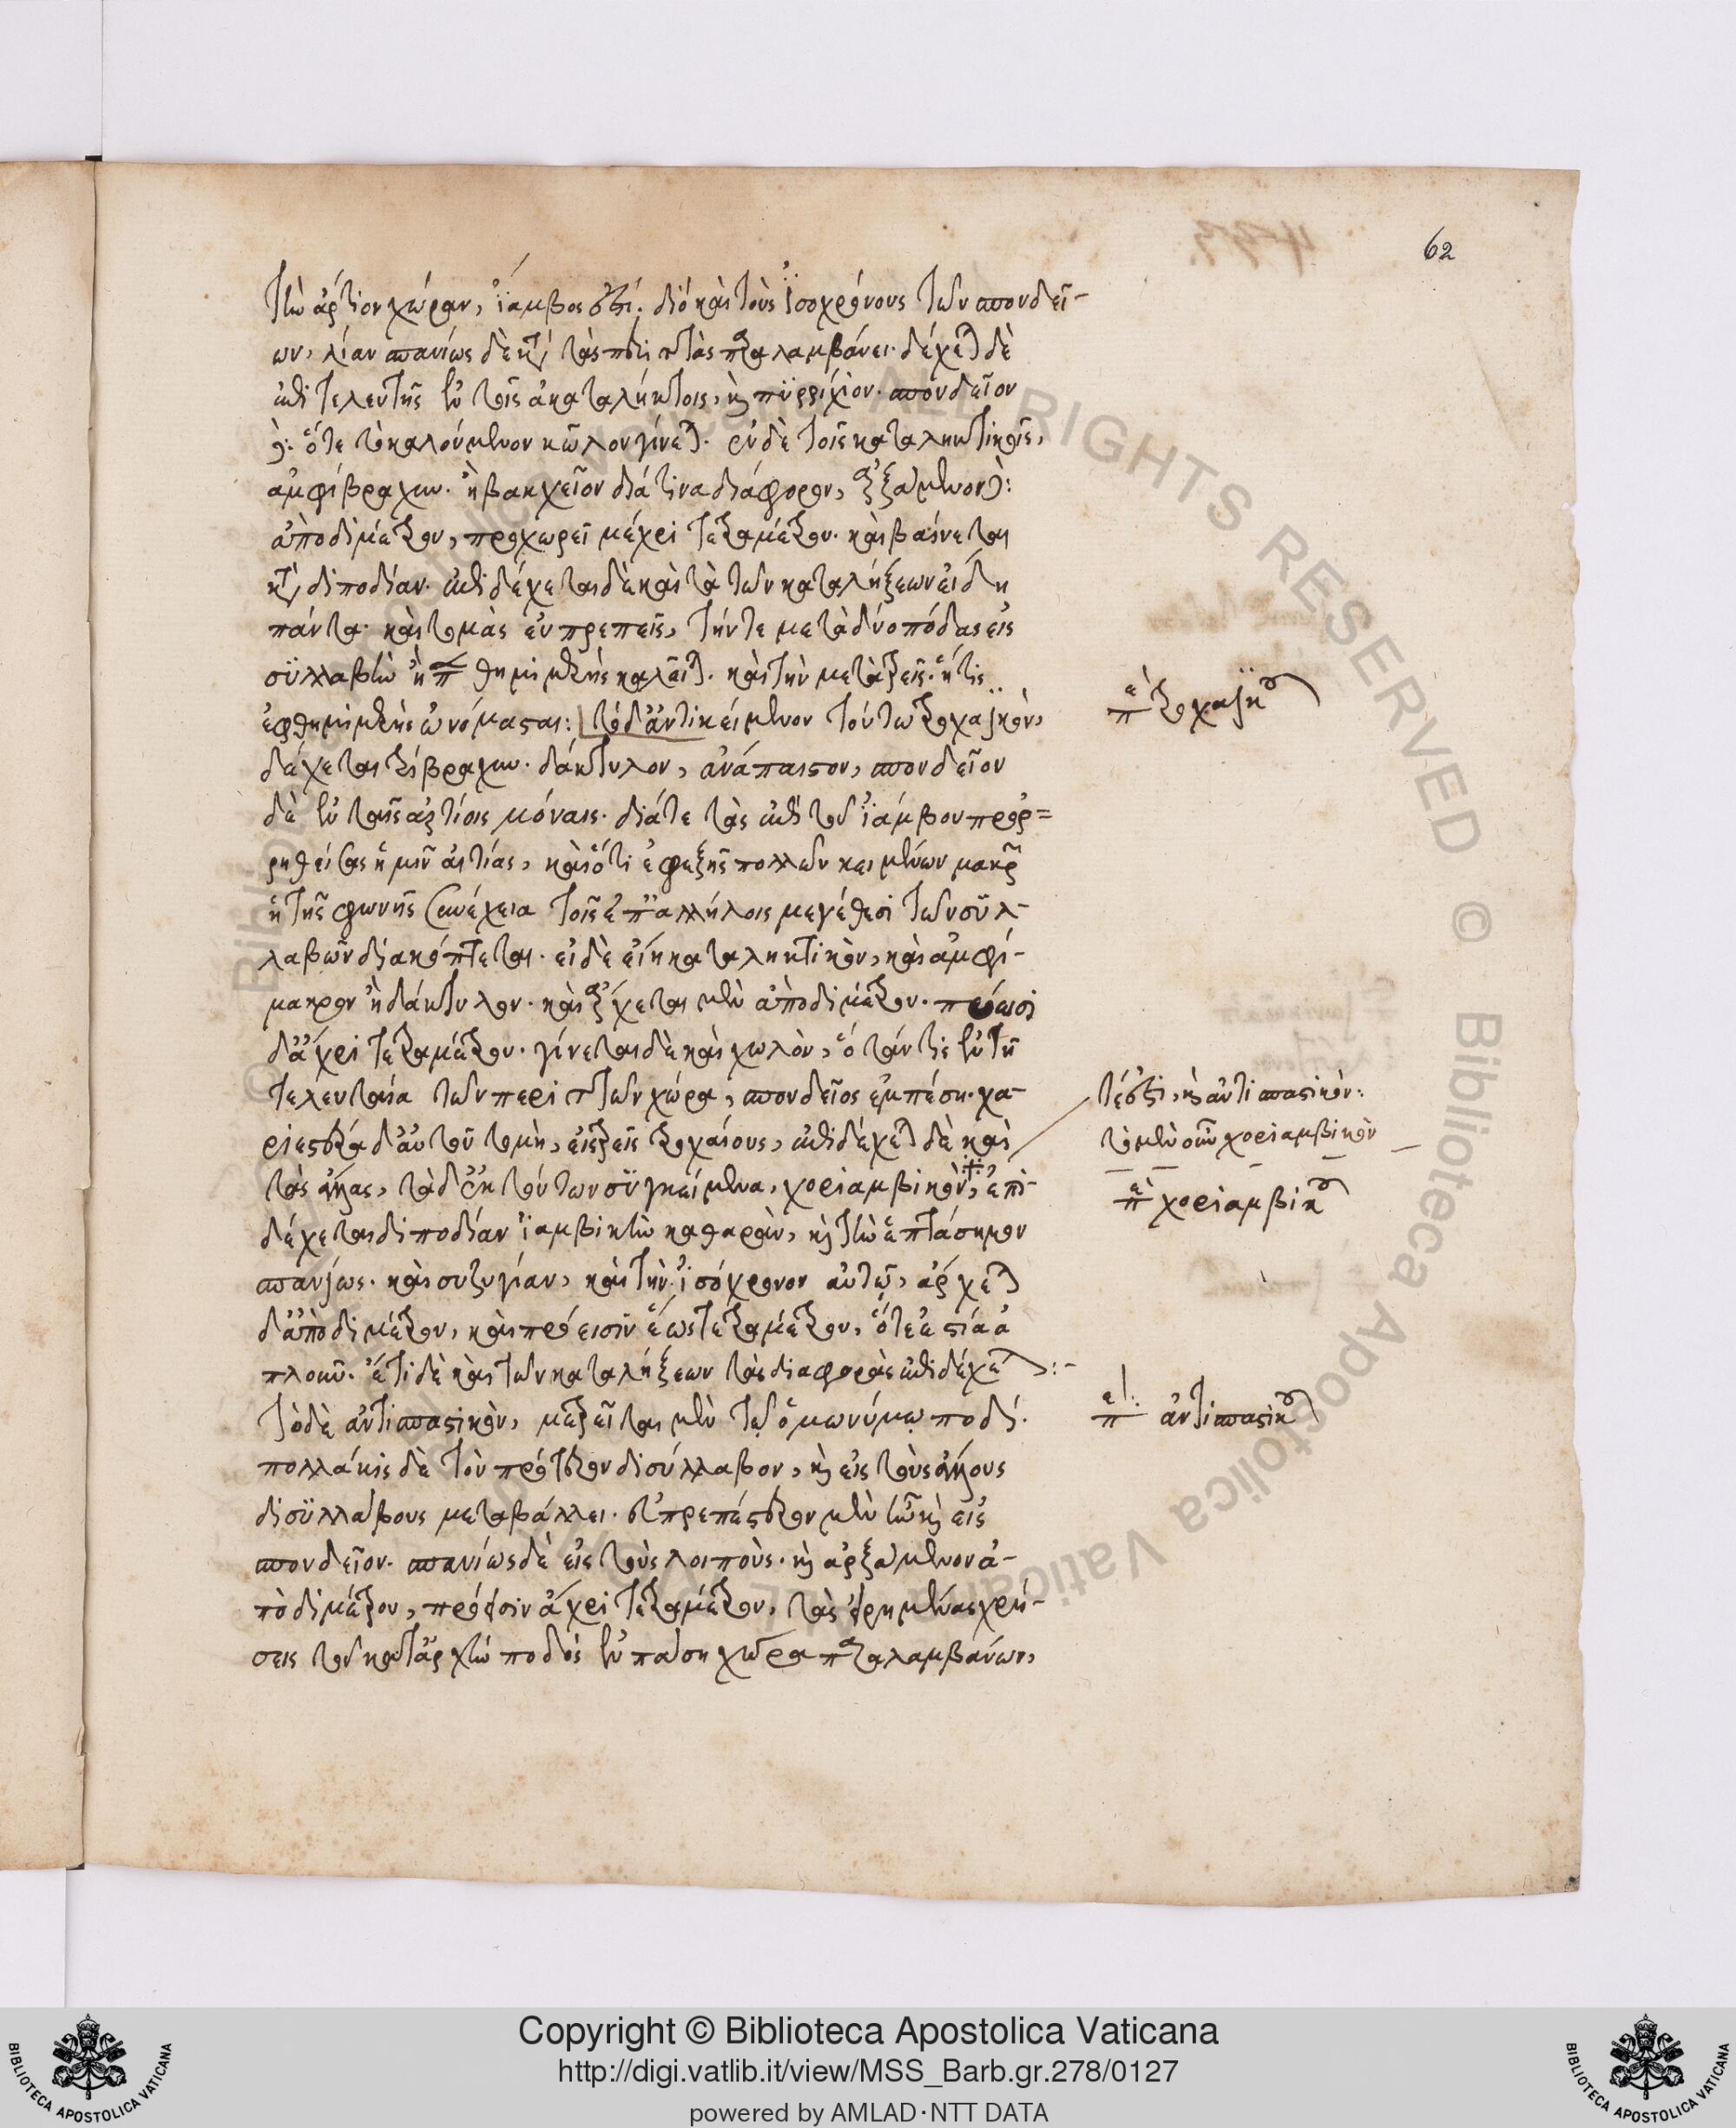 62
τὴν ἄρτιον χώραν, ἴαμβος ἐστί. διὸ καὶ τοὺς ἰσοχρόνους τῶν σπονδεί-
ων, λίαν σπανίως δὲ κατὰ τὰς περιττὰς παραλαμβάνει. δέχεται δὲ
ἐπὶ τελευτῆς ἐν τοῖς ἀκαταλήκτοις, καὶ πυρρίχιον. σπονδεῖον
ὅτε τὸ καλούμενον χωλὸν γίνεται. ἐν δὲ τοῖς καταληκτικοῖς,
ἀμφίβραχυν. ἢ βακχεῖον διά τινα διάφορον, ἀρξάμενον
ἀπὸ διμέτρου, προχωρεῖ μέχρι τετραμέτρου. καὶ βαίνεται
κατὰ διποδίαν. ἐπιδέχεται δὲ καὶ τὰ τῶν καταλήξεων εἴδη
πάντα. καὶ τομὰς εὐπρεπεῖς, τήν τε μετὰ δύο πόδας εἰς
συλλαβὴν ἢ πενθημιμερὴς καλεῖται. καὶ τὴν μετὰ τρεῖς. ἥτις
ἐφθημιμερὴς ὠνόμασται: τὸ δ' ἀντικείμενον τούτω τροχαϊκὸν,
περὶ τροχαϊκοῦ
δέχεται τρίβραχυν. δάκτυλον, ἀνάπαιστον, σπονδεῖον
δὲ ἐν ταῖς ἀρτίοις μόναις. διά τε τὰς ἐπὶ τοῦ ἰάμβου προρ=
ρηθείσας ἡμῖν αἰτίας, καὶ ὅτι ἐφεξῆς πολλῶν κειμένων μακρῶν
ἡ τῆς φωνῆς συνέχεια τοῖς ἐπαλλήλοις μεγέθεσι τῶν συλ-
λαβῶν διακόπτεται. εἰ δὲ εἴη καταληκτικὸν, καὶ ἀμφί-
μακρον ἢ δάκτυλον. καὶ ἄρχεται μὲν ἀπὸ διμέτρου. πρόεισι
δ' ἄχρι τετραμέτρου. γίνεται δὲ καὶ χωλὸν, ὅταν τις ἐν τῆ
τελευταία τῶν περιττῶν χώρα, σπονδεῖος ἐμπέση. χα-
ριεστέρα δ' αὐτοῦ τομὴ, εἰς τρεῖς τροχαίους, ἐπιδέχεται δὲ καὶ
τὰς ἄλλας, τὰ δ' ἐκ τούτων συγκείμενα, χοριαμβικὸν, ἐπι-
τέ ἐστι, καὶ ἀντισπαστικόν:
τὸ μὲν οὖν χοριαμβικὸν
περὶ χοριαμβικοῦ
δέχεται διποδίαν ἰαμβικὴν καθαρὰν, καὶ τὴν ἑπτάσημον
σπανίως. καὶ συζυγίαν, καὶ τὴν ἰσόχρονον αὐτῷ, ἄρχεται
δ' ἀπὸ διμέτρου, καὶ πρόεισιν ἕως τετραμέτρου, ὅτε ἐστὶ ἁ
πλοῦν. ἔτι δὲ καὶ τῶν καταλήξεων τὰς διαφορὰς ἐπιδέχεται:-
Τὸ δὲ ἀντισπαστικὸν, μετρεῖται μὲν τῷ ὁμωνύμῳ ποδί.
περὶ ἀντισπαστικοῦ
πολλάκις δὲ τὸν πρότερον δισύλλαβον, καὶ εἰς τοὺς ἄλλους
δισυλλάβους μεταβάλλει. εὐπρεπέστερον μὲν οὖν καὶ εἰς
σπονδεῖον. σπανίως δὲ εἰς τοὺς λοιποὺς. καὶ ἀρξάμενον ἀ-
πὸ διμέτρου, πρόεισιν ἄχρι τετραμέτρου, τὰς εἰρημένας χρή-
σεις τοῦ κατ' ἀρχὴν ποδὸς ἐν πάση χώρα παραλαμβάνων,
Copyright © Biblioteca Apostolica Vaticana
http://digi.vatlib.it/view/MSS_Barb.gr.278/0127
powered by AMLAD·NTT DATA